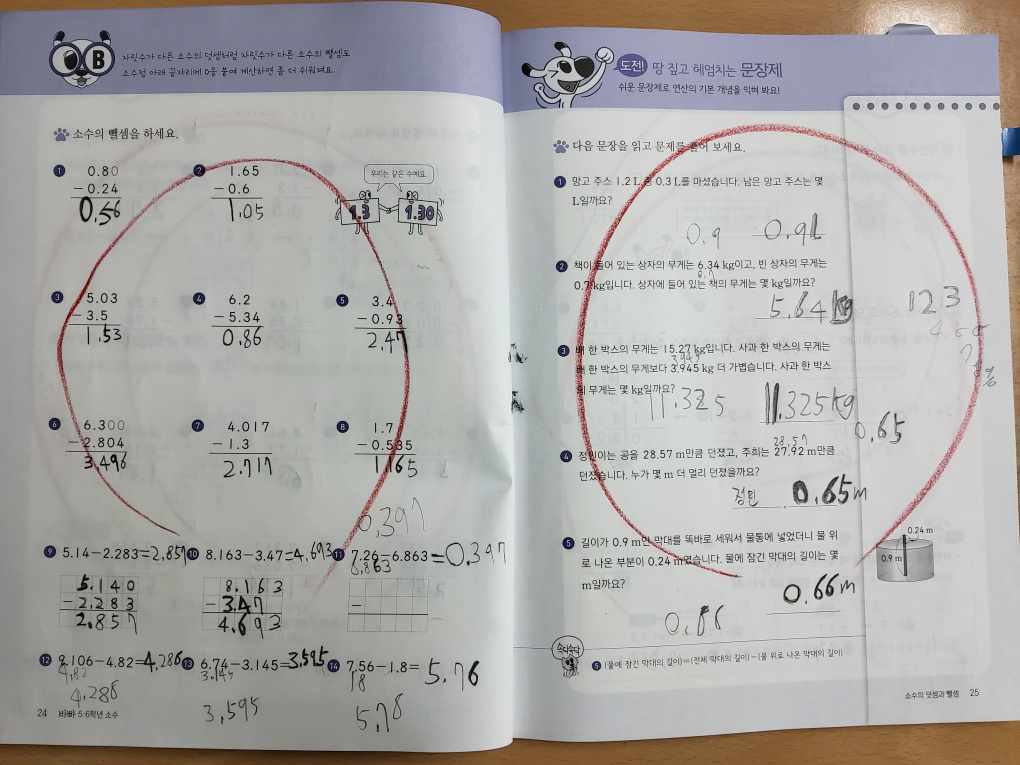 B
자릿수가 다른 소수의 덧셈처럼 자릿수가 다른 소수의 뺄셈도
소수점 아래 끝자리에 0을 붙여 계산하면 좀 더 쉬워져요.
소수의 뺄셈을 하세요.
1 0.80
- 0.24
0.56
2 1.65
- 0.6
1.05
우리는 같은 수예요.
1.3
1.30
3 5.03
- 3.5
1.53
4 6.2
- 5.34
0.86
5 3.4
- 0.93
2.47
6 6.300
- 2.804
3.496
7 4.017
- 1.3
2.717
8 1.7
- 0.535
1.165
0.397
9 5.14-2.283=2.857
5.140
- 2.283
2.857
10 8.163-3.47=4.693
8.163
- 3.47
4.693
11 7.26-6.863=0.397
6.863
-
12 9.106-4.82=4.286
4.82
4.286
13 6.74-3.145=3.595
3.145
3.595
14 7.56-1.8=5.76
18
24 바빠 5·6학년 소수
도전! 땅 짚고 헤엄치는 문장제
쉬운 문장제로 연산의 기본 개념을 익혀 봐요!
다음 문장을 읽고 문제를 풀어 보세요.
1 망고 주스 1.2 L 중 0.3 L를 마셨습니다. 남은 망고 주스는 몇
L일까요?
0.9 0.9L
2 책이 들어 있는 상자의 무게는 6.34 kg이고, 빈 상자의 무게는
0.7 kg입니다. 상자에 들어 있는 책의 무게는 몇 kg일까요?
5.64kg
123
3 배 한 박스의 무게는 15.27 kg입니다. 사과 한 박스의 무게는
3.945
배 한 박스의 무게보다 3.945 kg 더 가볍습니다. 사과 한 박스
의 무게는 몇 kg일까요?
11.325 11.325kg
0.65
28.57
4 정민이는 공을 28.57 m만큼 던졌고, 주희는 27.92 m만큼
던졌습니다. 누가 몇 m 더 멀리 던졌을까요?
정민 0.65m
5 길이가 0.9 m인 막대를 똑바로 세워서 물통에 넣었더니 물 위
로 나온 부분이 0.24 m였습니다. 물에 잠긴 막대의 길이는 몇
m일까요?
0.24 m
0.9 m
0.66m
속닥속닥
5 (물에 잠긴 막대의 길이)=(전체 막대의 길이)-(물 위로 나온 막대의 길이)
소수의 덧셈과 뺄셈 25